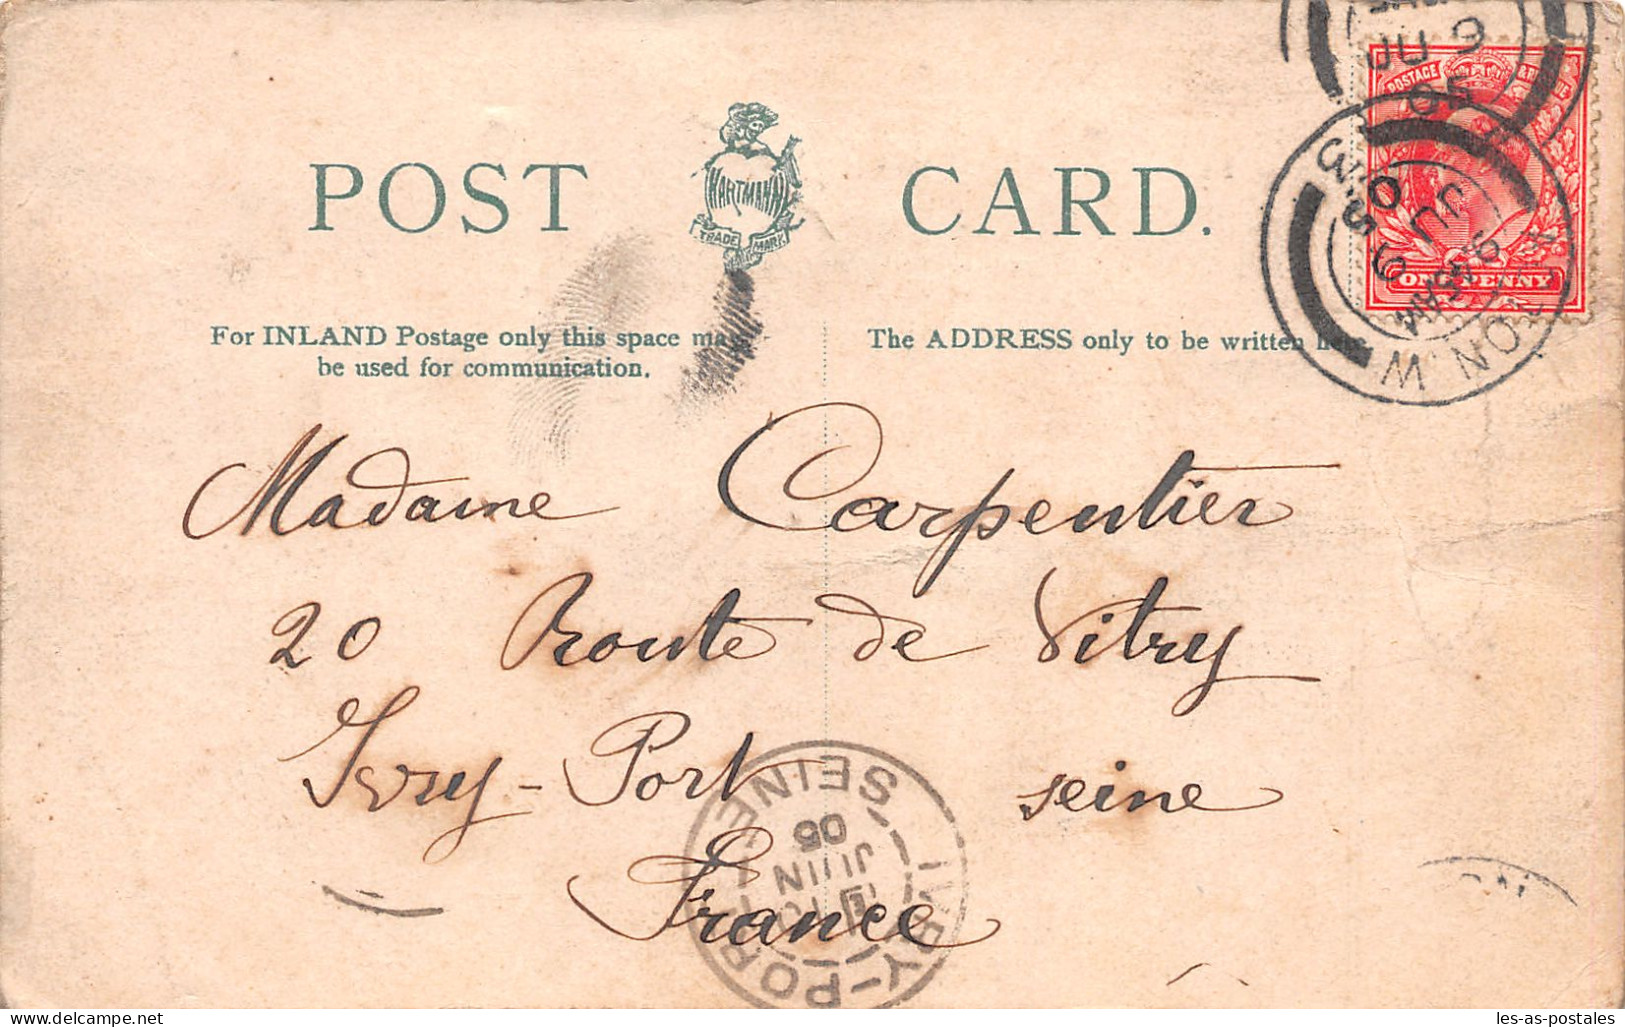 POST CARD.
HARTMANN
TRADE MARK
POSTAGE
ONE PENNY
JU 9
05
9.45 AM
JU 9
05
For INLAND Postage only this space may
be used for communication.
The ADDRESS only to be written here.
Madame Carpentier
20 Route de Vitry
Ivry-Port seine
France
IVRY-PORT
SEINE
JUIN
05
www.delcampe.net
les-as-postales